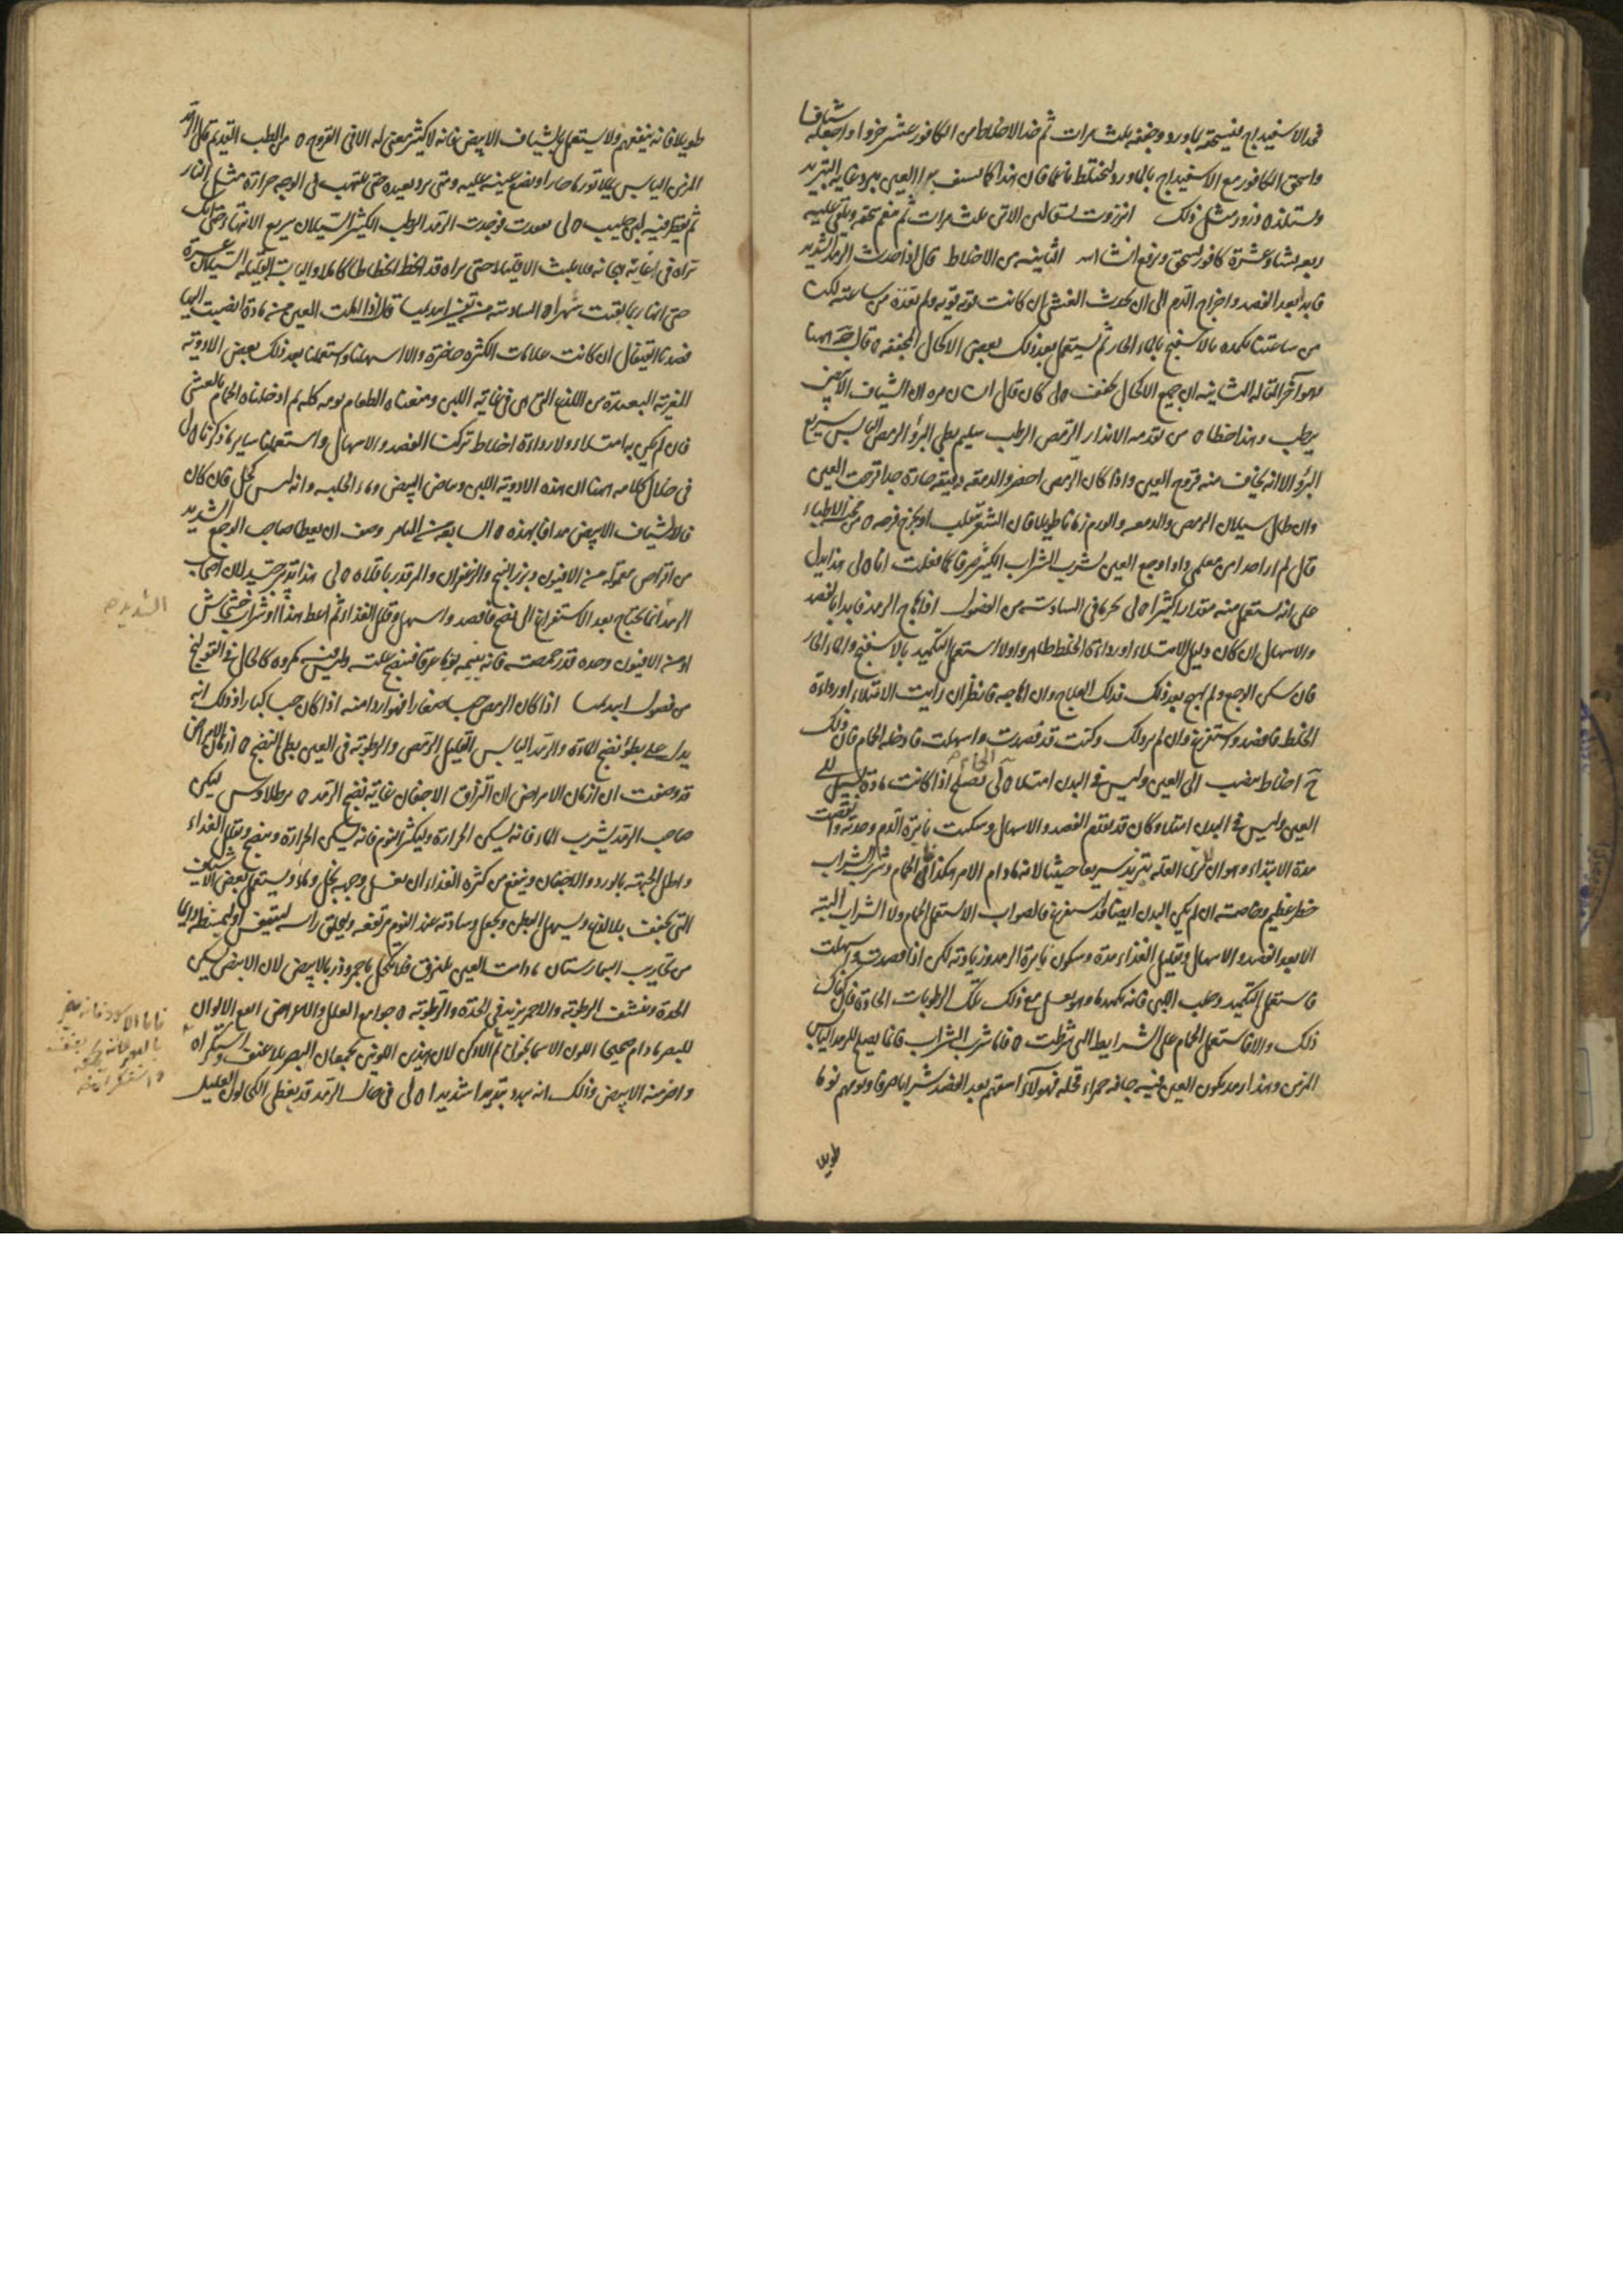 فخذ الاسفيداج فيسحقه بماورد وجففه ثلث مرات ثم خذ الاخلاط من الكافور عشر جزوا واجعله شيافا
واسحق الكافور مع الاسفيداج بالماورد ليختلط ناعما قال هذا كما العين يبرد غاية التبريد
وستلذه وذرور مثل ذلك انزروت يسقى لبن الاتن ثلث مرات ثم ينعم سحقه ويلقى عليه
ربعه نشا وعشره كافور يسحق ويرفع انشاالله الثانيه من الاخلاط قال اذا حدث الرمد الشديد
فابدا بعد الفصد واخراج الدم الى ان يحدث الغشى ان كانت قوته قويه ولم تغذه من ساعته لكن
من ساعتنا نكمده بالاسفنج بالماء الحار ثم يستعمل بعد ذلك بعض الاكحال المجففه قال ههنا
وهو آخر المقاله الثانيه ان جميع الاكحال تجفف لى كان قال انسان مره ان الشياف الابيض
يرطب وهذا خطا من تقدمه الانذار الرمص الرطب سليم بطى البرؤ الرمص اليابس سريع
البرؤ الا انه يخاف منه قروح العين واذا كان الرمص اصفر والدمعه رقيقه حاره جدا قرحت العين
وان طال سيلان الرمص والدمعه والورم زمانا طويلا قال الشعر ينقلب او يخرج قرحه من محنة الاطباء
قال لم ار احدا من معلمى داوا وجع العين بشرب الشراب الكثير صرفا كما فعلت انا لى هذا يدل
على انه يستعمل منه مقدارا كثيرا لى تحرفا فى السادسه من الفصول اذا هاج الرمد فابدا بالفصد
والاسهال ان كان دليل الامتلاء او رداءة الخلط ظاهرا واولا استعمل التكميد بالاسفنج والماء الحار
فان سكن الوجع ولم يهج بعد ذلك فذلك العلاج وان هاجه فانظر ان رايت الامتلاء او رداءة
الخلط فافصد واستفرغ وان لم تر ذلك وكنت قد فصدت واسهلت فادخله الحمام فان ذلك
ح اخلاط تنصب الى العين وليس فى البدن امتلاء لى تصلح الحمام اذا كانت مادة تسيل الى
العين وليس فى البدن امتلاء وكان قد تقدم الفصد والاسهال وسكنت نايرة الدم وحدته وانقضت
مدة الابتداء وهو ان ترى العله تتزيد سريعا حثيثا لانه مادام الامر هكذا ففى الحمام وشرب الشراب
خطر عظيم وخاصة ان لم يكن البدن ايضا قد استفرغ فالصواب الا تستعمل الحمام ولا الشراب البته
الا بعد الفصد والاسهال وتقليل الغذاء مدة وسكون نايرة الرمد وزيادته لكن اذا فصدت واسهلت
فاستعمل التكميد وحلب اللبن فانه تكميد ما وهو يغسل مع ذلك تلك الرطوبات الحادة فان كفاك
ذلك والا فاستعمل الحمام على الشرايط التى شرطت فاما شرب الشراب فانما يصلح للرمد اليابس
المزمن وهذا رمد يكون العين فيه جافه حمراء قحله فهولاء اسقهم بعد الفصد شرابا صرفا ونومهم نوما
طويلا
طويلا فانه ينفعهم ولا يستعمل الشياف الابيض فانه لا كثير معنى له الا فى القروح من الطب القديم قال الرمد
المزمن اليابس يملا تورا ماء حارا ويضع عينه عليه ومتى برد يعيده حتى يلتهب فى الوجه حرارة مثل النار
ثم يقطر فيه لبن حليب لى تعمدت فوجدت الرمد الرطب الكثير السيلان سريع الانتهاء حتى انك
تراه فى اعانة هيجانه فلا يلبث الا قليلا حتى تراه قد انحط انحطاطا كاملا واليابسة القليله السيلان عسرة
حتى انها ربما بقيت شهرا السادسه من تفسير ابيذيميا قال اذا المت العين من مادة انصبت اليها
فصدنا القيفال ان كانت علامات الكثره حاضرة والا اسهلنا واستعملنا بعد ذلك بعض الادوية
المغرية البعيدة من اللذع التى هى فى غاية اللين ومنعناه الطعام يومه كله ثم ادخلناه الحمام بالعشى
فان لم يكن بها امتلاء ولا رداءة اخلاط تركنا الفصد والاسهال واستعملنا ساير ما ذكرنا لى
فى خلال كلامه ههنا ان هذه الادوية اللبن وبياض البيض وماء الحلبه وانه ليس بكحل فان كان
فالاشياف الابيض مدافا بهذه السابعه من الميامر وصف ان يعطا صاحب الوجع الشديد
من اقراص معموله من الافيون وبزر البنج والزعفران والمر قدر باقلاه لى هذا تدبير جيد لان اصحاب
الرمد انما يحتاج بعد الاستفراغ الى نضج فافصد واسهل وقلل الغذاء ثم اعط هذا او شراب خشخاش
او من الافيون وحده قدر حمصة فانه ينيمه نوما غرقا فينضج علته وليس فيه مكروه كالحال فى القولنج
من فصول ابيذيميا اذا كان الرمص حبا صغارا فهو اردا منه اذا كان حبا كبارا وذلك انه
يدل على بطؤ نضج المادة والرمد اليابس القليل الرمص والرطوبة فى العين بطى النضج ازمان الامراض
قد وصفت ان ازمان الامراض ان التزاق الاجفان غاية نضج الرمد ليكن
صاحب الرمد يشرب الماء فانه يسكن الحرارة وليكثر النوم فانه يسكن الحرارة وينضج ويقلل الغذاء
واطل الجبهة بالورد والاجفان ويمنع من كثرة الغذاء ان يغسل وجهه بخل وماء ويستعمل بعض الاشياف
التى تجفف بلا لذع ويسهل البطن ويجعل وسادته عند النوم مرتفعه
من تجارب البيمارستان مادامت العين تلتزق فلا تكحل باحمر وذر بالابيض لان الابيض يسكن
الحدة وينشف الرطوبة والاحمر يزيد فى الحدة والرطوبة جوامع العلل والاعراض انفع الالوان
للبصر مادام صحيحا اللون الاسمانجونى ثم الادكن لان هذين اللونين يجمعان البصر بلا عنف واستكراه
واضر منه الابيض وذلك انه يبدد تبديدا شديدا لى فى حال الرمد قد يغطى الكحالون العليل
الشديد
فاما الاسود فانه يضر
بالبصر